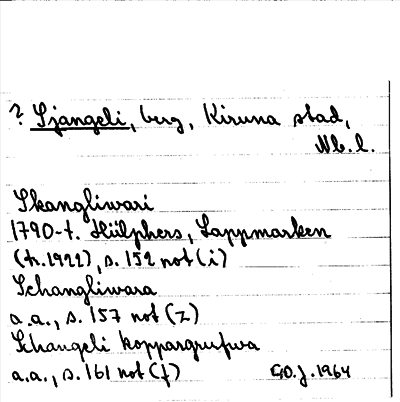 ? Sjangeli, berg, Kiruna stad,
Nb. l.
Skangliwari
1790-t. Hülphers, Lappmarken
(tr. 1922), s. 152 not (i)
Schangliwara
a.a., s. 157 not (z)
Schangeli koppargrufwa
a.a., s. 161 not (f)
G.O.J. 1964